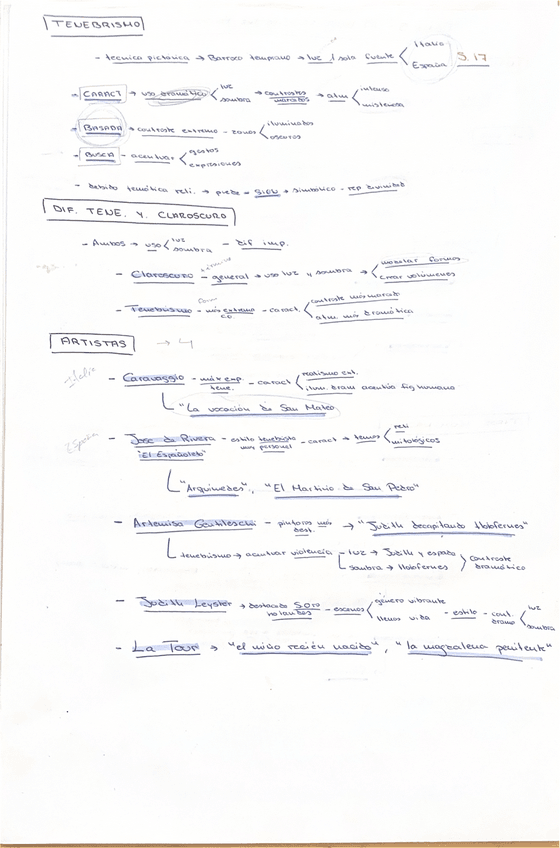 TENEBRISMO
- tecnica pictorica → Barroco temprano → luz 1 sola fuente < Italia S. 17
España
→ CARACT → uso dramático < luz → contrastes marcados → atm < intensa
sombra misteriosa
→ BASADA → contraste extremo - zonas < iluminadas
oscuros
- BUSCA - acentuar < gestos
expresiones
- Debido temática reli. → piedad - SIGN → simbolico - rep divinidad
DIF. TENE. Y. CLAROSCURO
- Ambos → uso < luz - dif imp.
sombra
- Claroscuro - general → uso luz y sombra → < modelar formas
crear volúmenes
- Tenebrismo - más extremo - caract. < contraste más marcado
atm más dramática
ARTISTAS → 4
Italia
- Caravaggio - máx exp. tene. - caract < realismo ext.
ilum. dram acentúa fig humana
"La vocación de San Mateo
España
- Jose de Rivera - estilo tenebrista muy personal - caract → temas < reli
"El Españoleto" mitológicos
"Arquimedes", "El Martirio de San Pedro"
- Artemisa Gentileschi - pintoras más dest. → "Judith decapitando Holofernes"
tenebrismo → acentuar violencia - luz → Judith y espada > contraste
sombra → Holofernes dramático
- Judith Leyster → destacada SORO holandes - escenas < género vibrante
llenas vida - estilo - cont. dramo < luz
sombra
- La Tour → "el niño recién nacido", "la magdalena penitente"